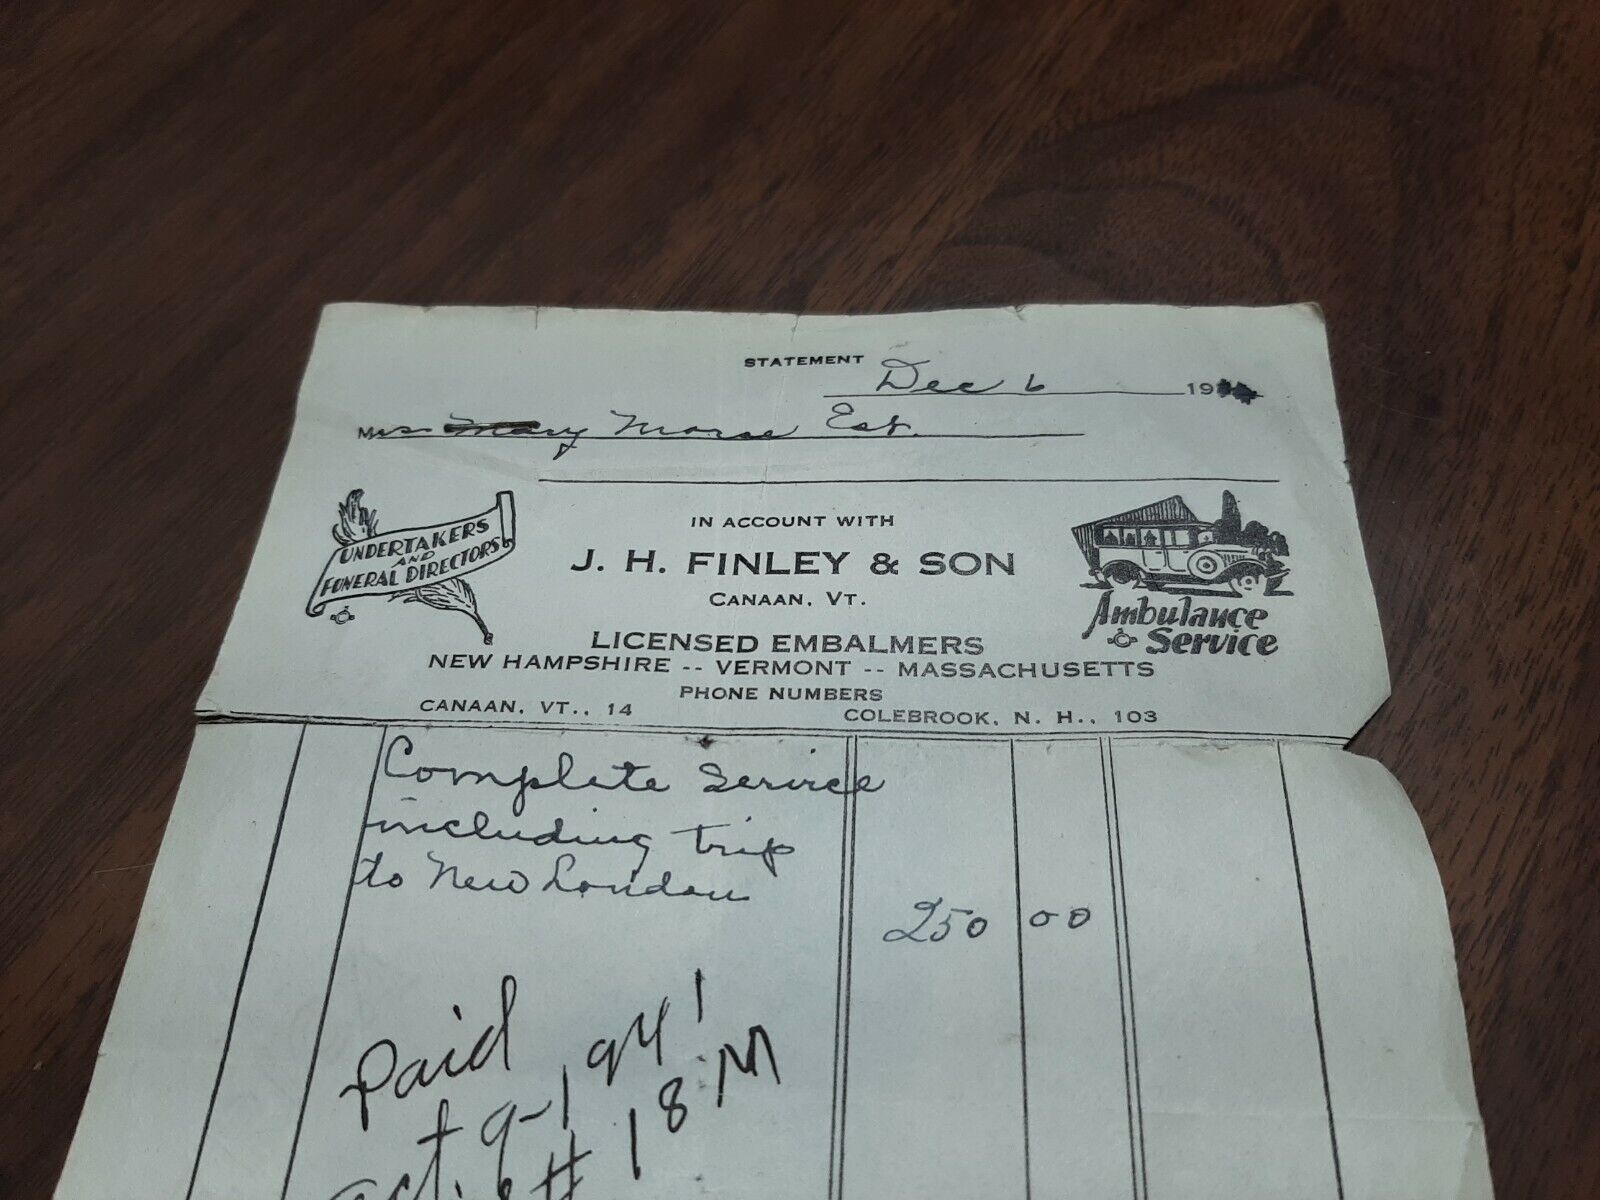 STATEMENT
Dec 6 19
Mrs Mary Morse Est.
UNDERTAKERS
AND
FUNERAL DIRECTORS
IN ACCOUNT WITH
J. H. FINLEY & SON
CANAAN, VT.
Ambulance
Service
LICENSED EMBALMERS
NEW HAMPSHIRE -- VERMONT -- MASSACHUSETTS
PHONE NUMBERS
CANAAN, VT., 14 COLEBROOK, N. H., 103
Complete Service
including trip
to New London
250 00
Paid
Oct. 9-1941
# 18 M